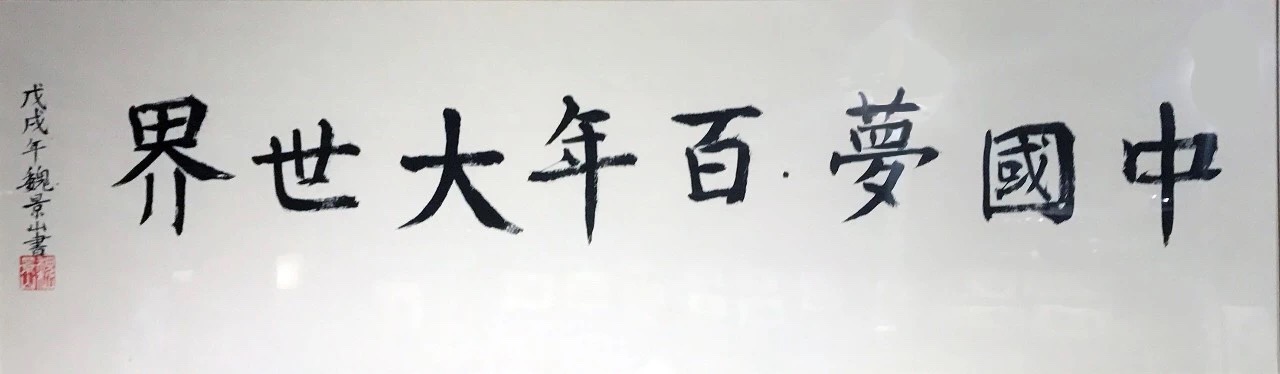 中國夢·百年大世界
戊戌年魏景山書